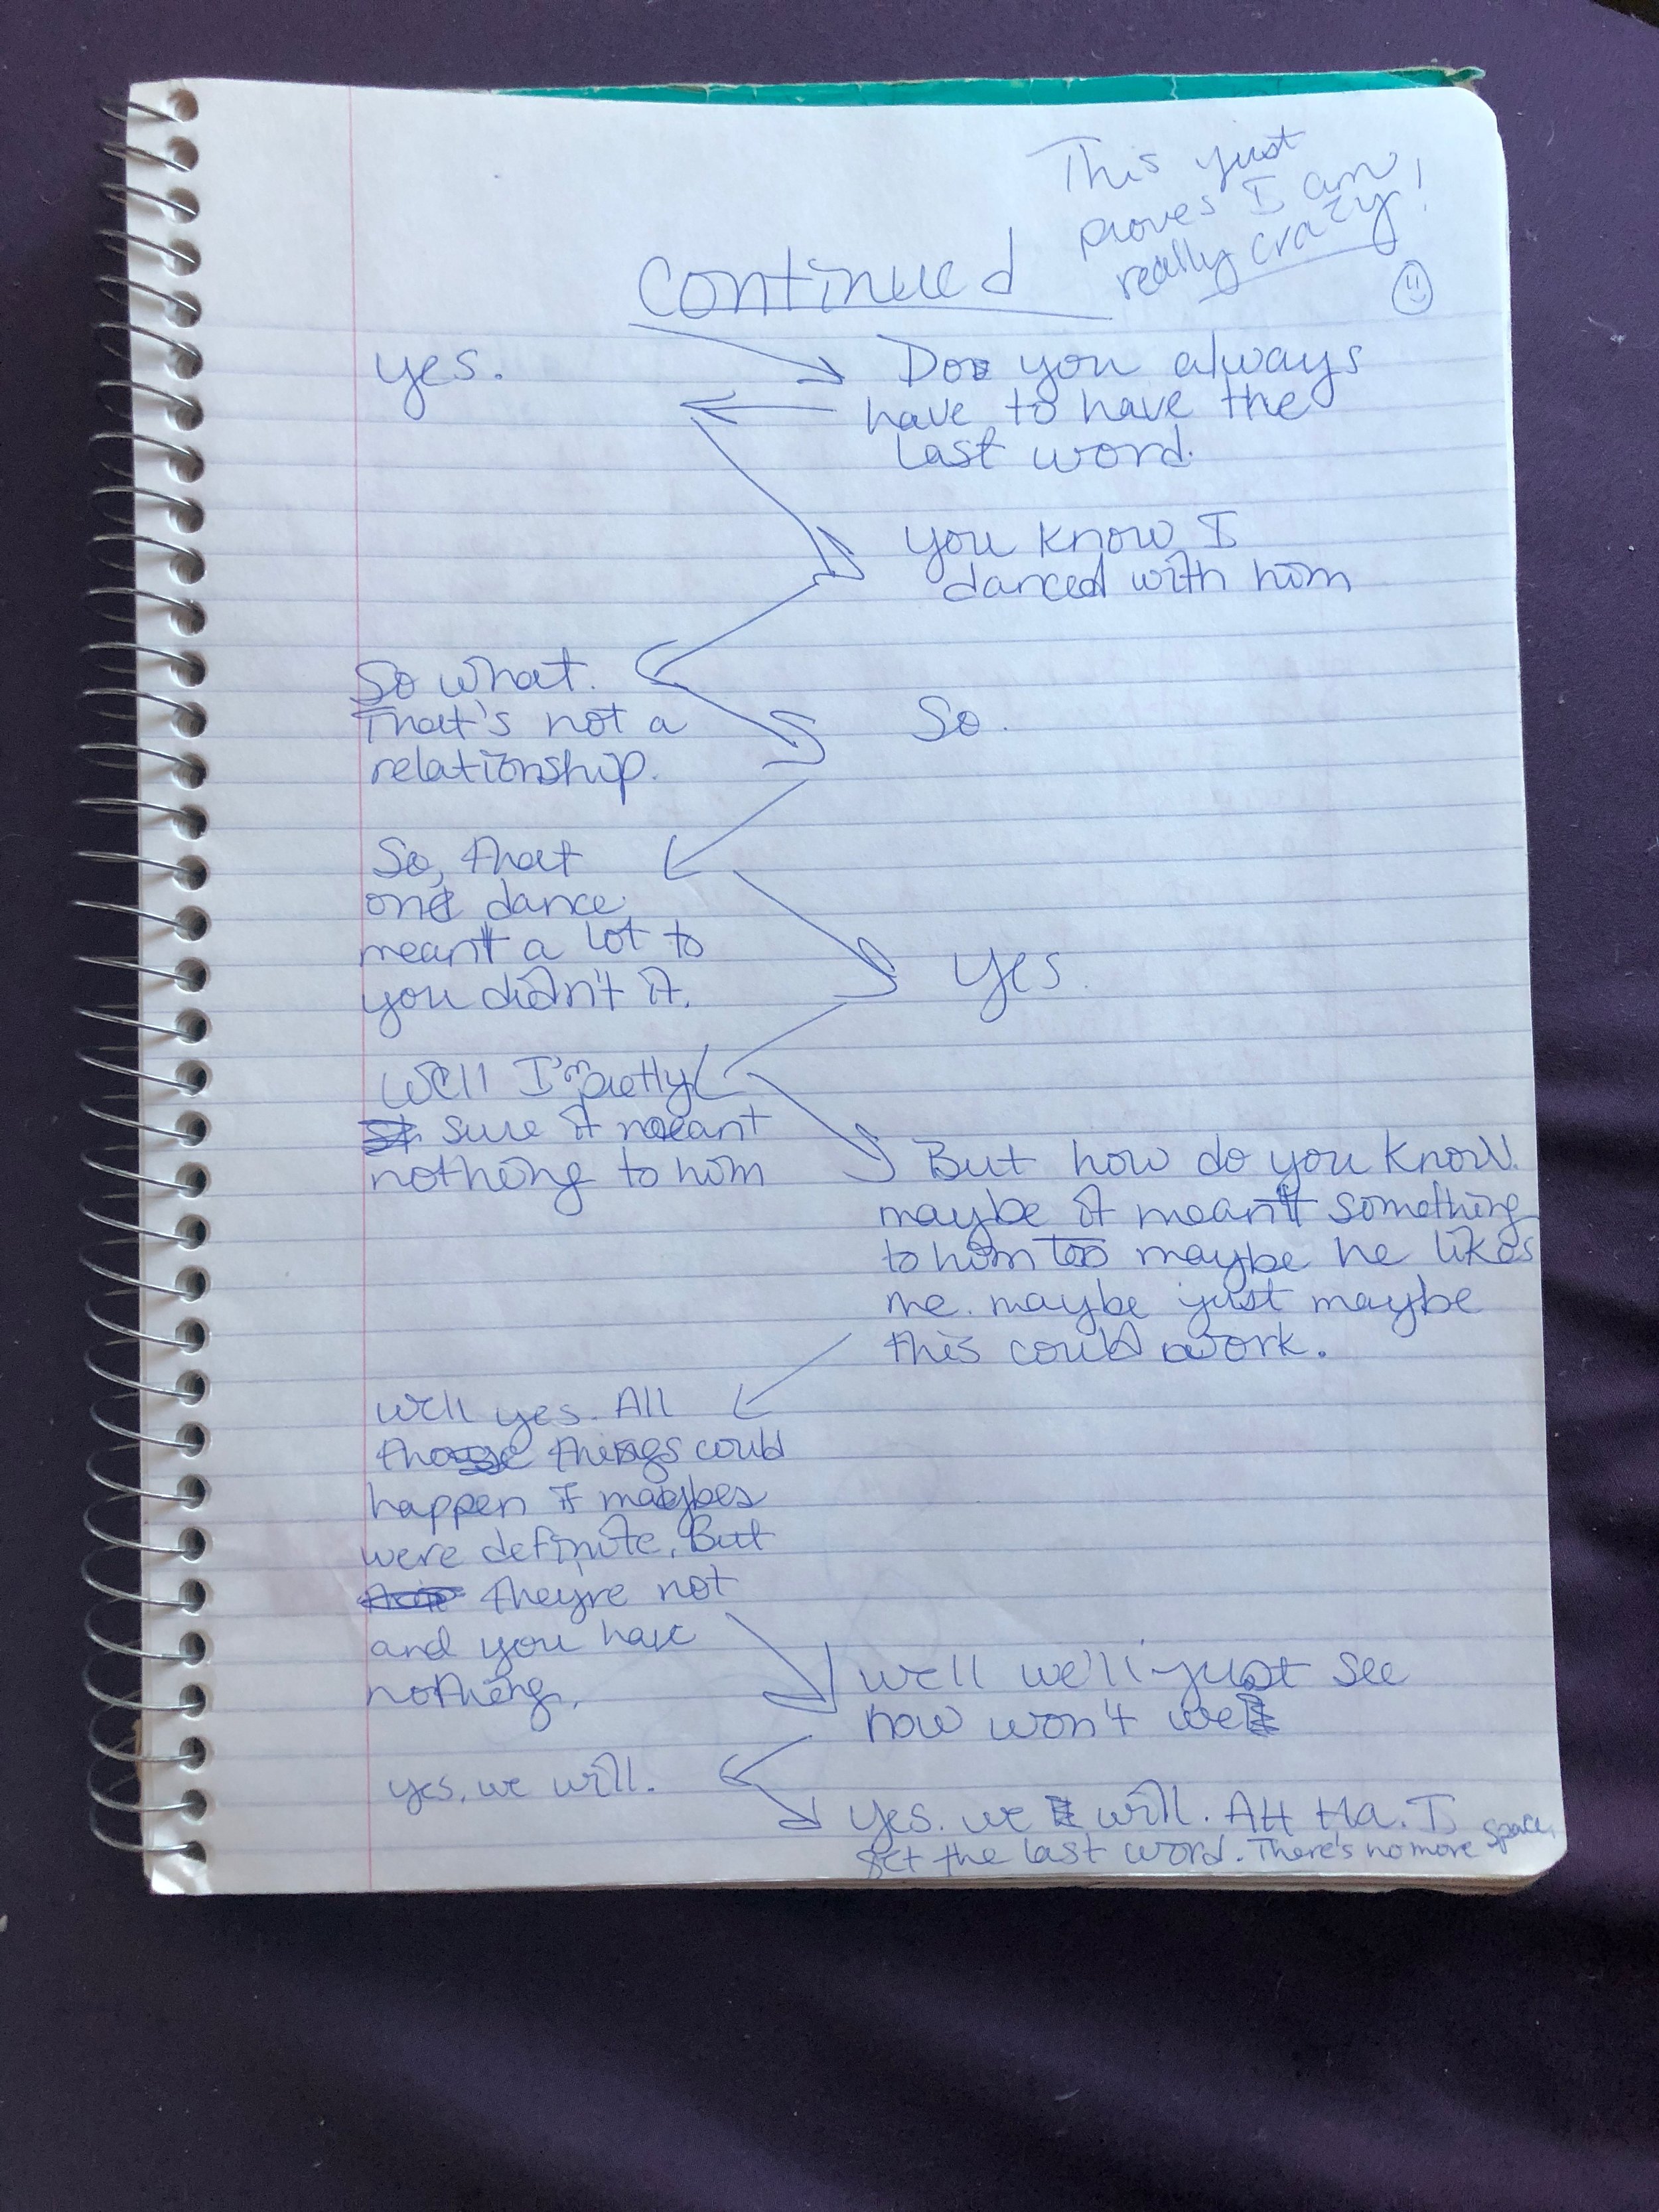 This just
proves I am
really crazy!
Continued
Do you always
have to have the
last word.
yes.
you know I
danced with him
So what.
That's not a
relationship.
So.
So, that
one dance
meant a lot to
you didn't it.
Yes.
Well I'm pretty
sure it meant
nothing to him
But how do you know.
maybe it meant something
to him too maybe he likes
me. maybe just maybe
this could work.
Well yes. All
those things could
happen if maybes
were definite. But
theyre not
and you have
nothing.
Well we'll just see
now won't we
yes, we will.
Yes. we will. AH Ha. I
get the last word. There's no more space.